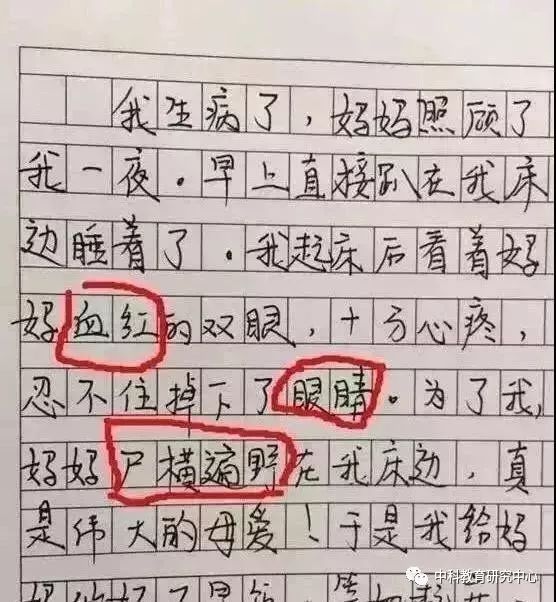 我生病了，妈妈照顾了
我一夜．早上直接趴在我床
边睡着了．我起床后看着妈
妈血红的双眼，十分心疼，
忍不住掉下了眼睛。为了我，
妈妈尸横遍野在我床边，真
是伟大的母爱！于是我给妈
中科教育研究中心